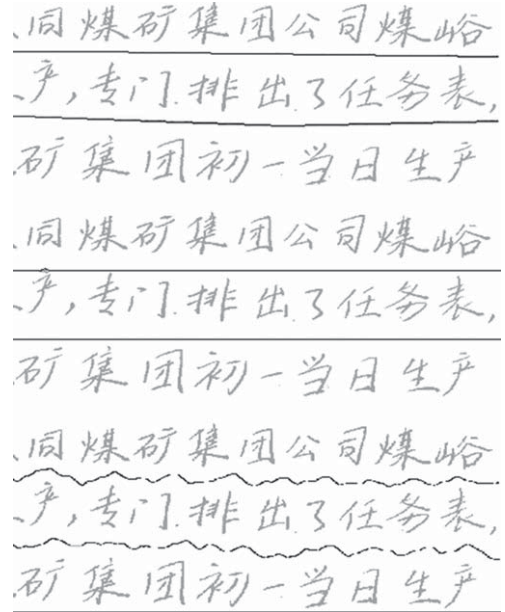 同煤矿集团公司煤峪
产,专门排出了任务表,
矿集团初一当日生产
同煤矿集团公司煤峪
产,专门排出了任务表,
矿集团初一当日生产
同煤矿集团公司煤峪
产,专门排出了任务表,
矿集团初一当日生产